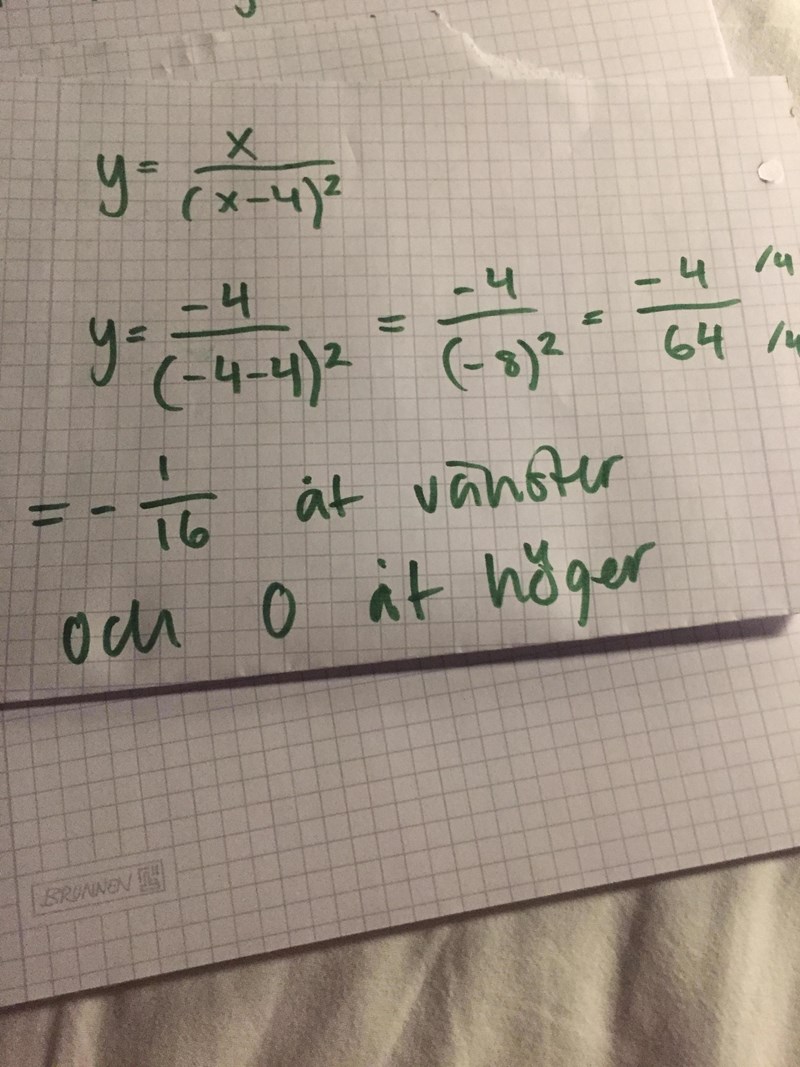 y = x / (x-4)²
y = -4 / (-4-4)² = -4 / (-8)² = -4 /4 / 64 /4
= - 1/16 åt vänster
och 0 åt höger
BRUNNEN